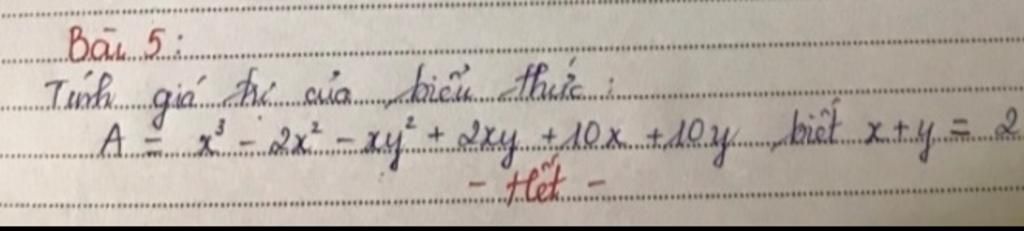 Bài 5:
Tính giá trị của biểu thức:
A = x³ - 2x² - xy² + 2xy + 10x + 10y biết x + y = 2
- Hết -